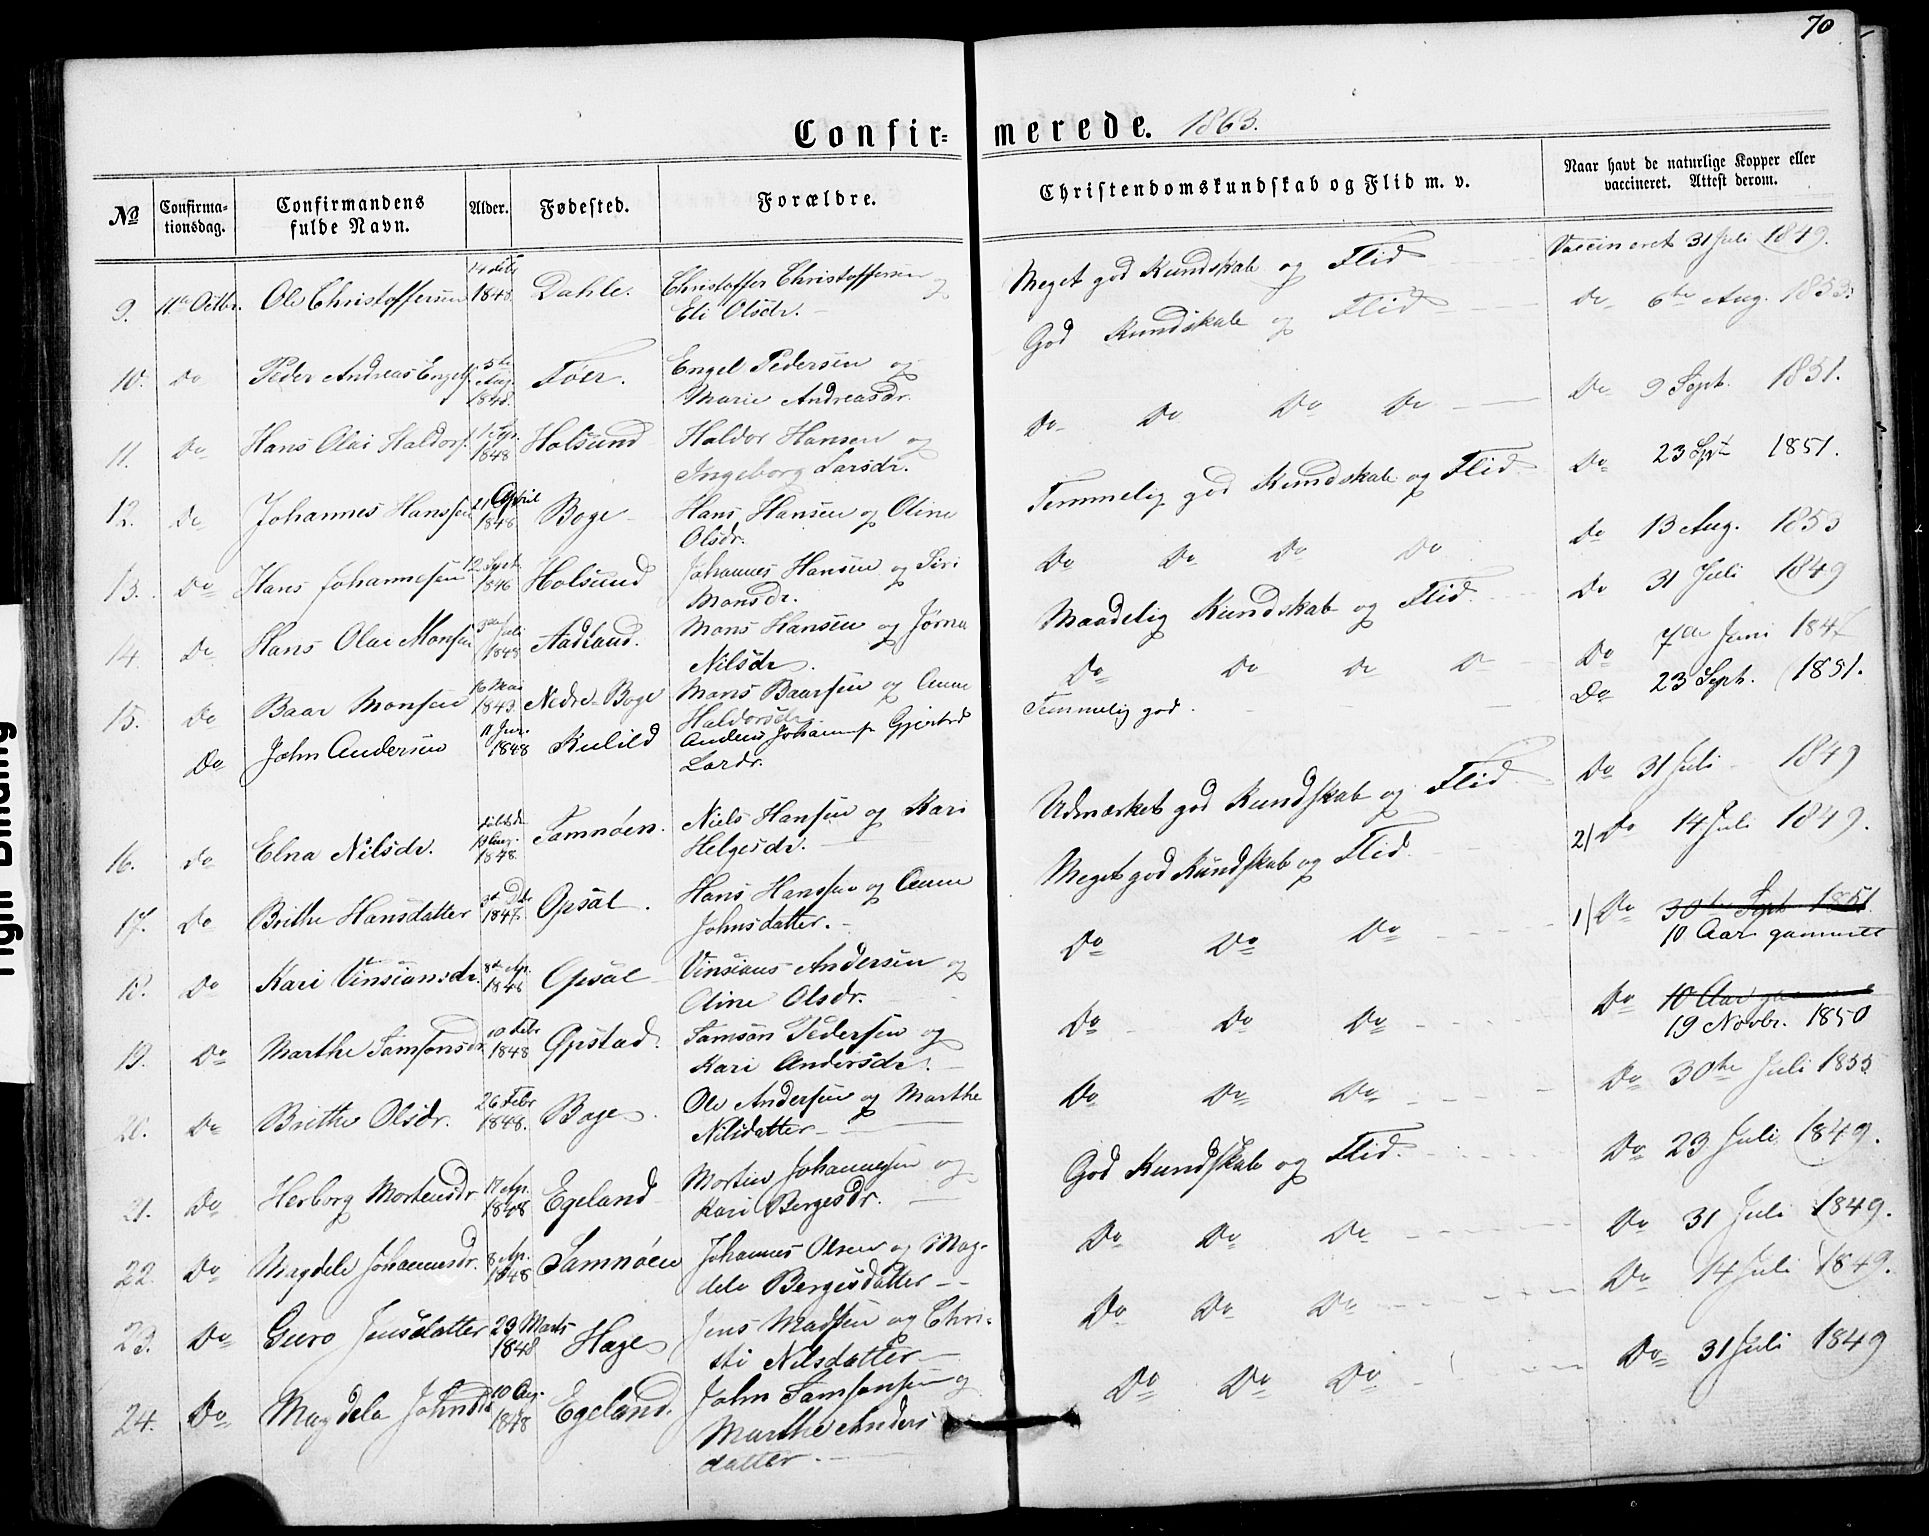 70
Confirmerede. 1863.
No
Confirmationsdag.
Confirmandens fulde Navn.
Alder.
Fødested.
Forældre.
Christendomskundskab og Flid m. v.
Naar havt de naturlige Kopper eller vaccineret. Attest derom.
9. 11te Octbr. Ole Christoffersen 14 Feb 1848 Dahle. Christoffer Christoffersen og Meget god Kundskab og Flid Vaccineret 31 Juli 1849.
Eli Olsdr.
10. Do Peder Andreas Engelf. 5te Aug. 1848. Föer. Engel Pedersen og God Kundskab og Flid Do 6te Aug. 1853.
Marie Andreasdr.
11. Do Hans Olai Haldorf. 1848 Holsund Haldor Hansen og Do Do Do Do Do 9 Sept. 1851.
Ingeborg Larsdr.
12. Do Johannes Hansen 21 April 1848 Boge Hans Hansen og Oline Temmelig god Kundskab og Flid Do 23 Spt 1851.
Olsdr.
13. Do Hans Johannesen 12 Sept 1846 Holsund Johannes Hansen og Siri Do Do Do Do Do 13 Aug. 1853
Monsdr.
14. Do Hans Olai Monsen 3die Juli 1848 Aadland. Mons Hansen og Jørna Maadelig Kundskab og Flid Do 31 Juli 1849
Nilsdr.
15. Do Baar Monsen 16 Mai 1843. Nedre-Boge Mons Baarsen og Anne Do Do Do D Do 7de Juni 184
Haldorsdr.
Do John Andersen 11 Jun. 1848 Kulild Anders Johannesf. Gjertrud Temmelig god. Do 23 Sept. 1851.
Lardr.
16. Do Elna Nilsdr. 1848. Tamnöen. Niels Hansen og Kari Udmærket god Kundskab og Flid Do 31 Juli 1849
Helgesdr.
17. Do Brithe Hansdatter 3d Dbr 1847. Opsal. Hans Hansen og Anne Meget god Kundskab og Flid 2) Do 14 Juli 1849.
Johnsdatter.
18. Do Kari Vinsiansdr. 8de Ap. 1848 Opsal Vinsians Andersen og Do Do Do 1) Do 30te Sept 1851
Oline Olsdr. 10 Aar gammel
19. Do Marthe Samsonsdr 10 Febr 1848 Opstad. Samson Pedersen og Do Do Do Do 10 Aar gammel
Kari Andersdr. 19 Novbr. 1850
20. Do Brithe Olsdr. 26 Febr 1848. Boge Ole Andersen og Marthe Do Do Do Do 30te Juli 1855
Nilsdatter
21. Do Herborg Mortensdr 17 Ap. 1848 Egeland Morten Johannessen og God Kundskab og Flid. Do 23 Juli 1849.
Kari Bergesdr.
22. Do Magdele Johannesdr. 8 Ap. 1848 Samnöen Johannes Olsen og Mag- Do Do Do Do 31 Juli 1849.
dele Bergesdatter
23. Do Guro Jensdatter 29 Marts 1848 Hage Jens Madsen og Chri- Do Do Do Do 14 Juli 1849.
sti Nilsdatter
24. Do Magdela Johnsdr 10 Aug. 1848 Egeland. John Samsonsen og Do Do Do Do 31 Juli 1849
Marthe Anders
datter.
Tight Binding